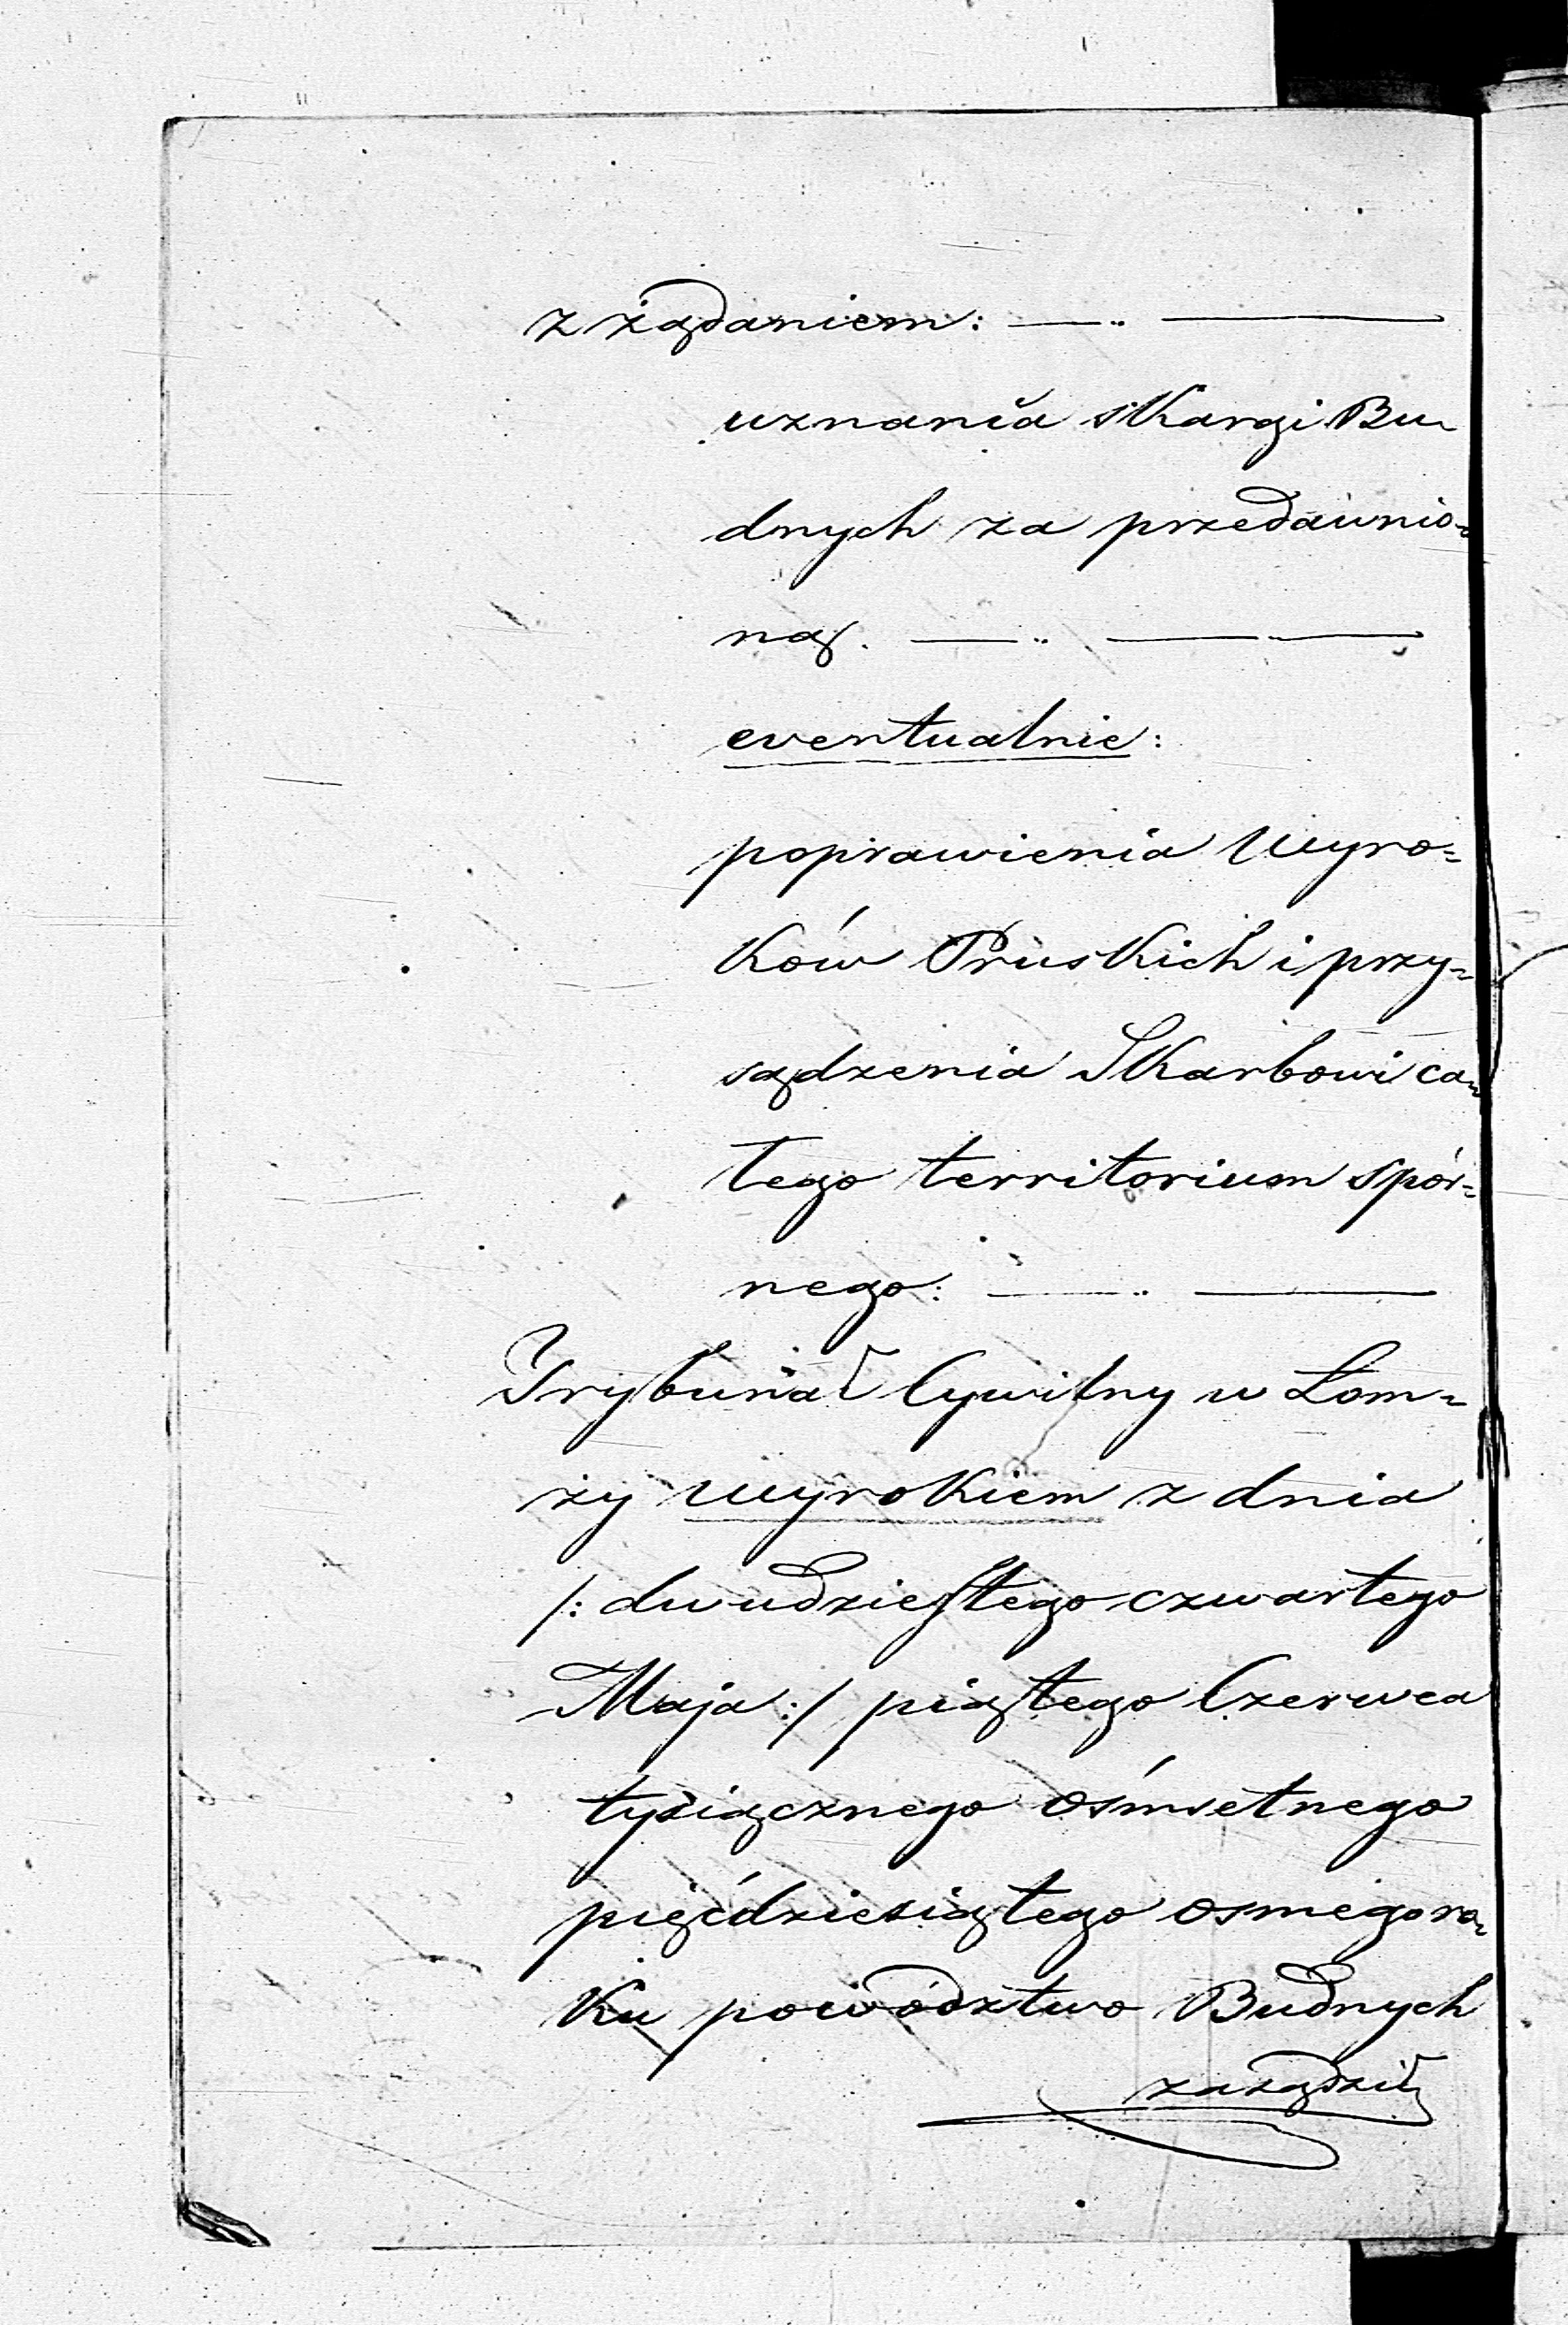 z żądaniem: —..——
uznania skargi Bu-
dnych za przedawnio-
ną. —..——
eventualnie:
poprawienia Wyro=
ków Pruskich i przy=
sądzenia Skarbowi ca-
łego territorium spór=
nego: —..——
Trybunał Cywilny w Łom=
ży Wyrokiem z dnia
/: dwudziestego czwartego
Maja :/ piątego Czerwca
tysiącznego ośmsetnego
pięćdziesiątego osmego ro-
ku powództwo Budnych
zasądził